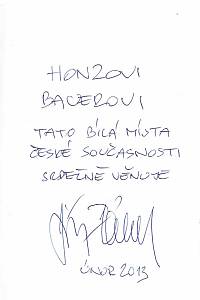 HONZOVI
BAUEROVI
TATO BÍLÁ MÍSTA
ČESKÉ SOUČASNOSTI
SRDEČNĚ VĚNUJE
ÚNOR 2013